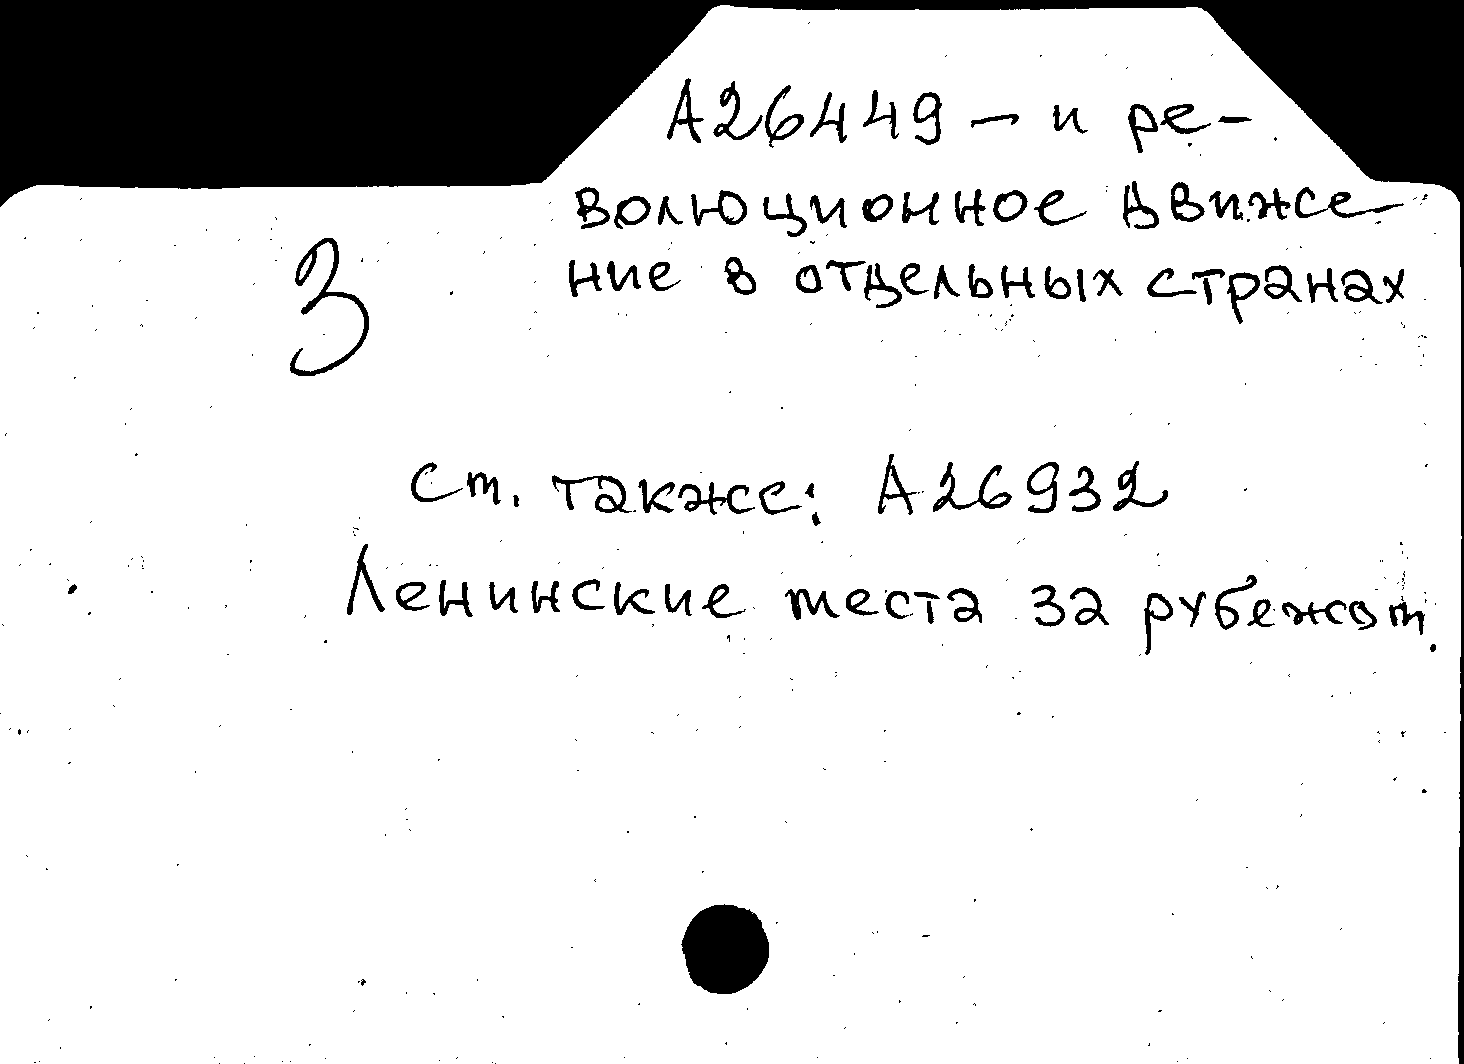 А26449 – и ре-
волюционное движе-
ние в отдельных странах
3
См. также: А26932
Ленинские места за рубежом.